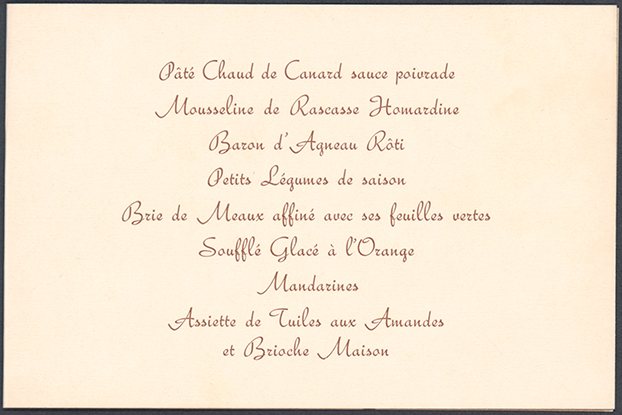 Pâté Chaud de Canard sauce poivrade
Mousseline de Rascasse Homardine
Baron d'Agneau Rôti
Petits Légumes de saison
Brie de Meaux affiné avec ses feuilles vertes
Soufflé Glacé à l'Orange
Mandarines
Assiette de Tuiles aux Amandes
et Brioche Maison